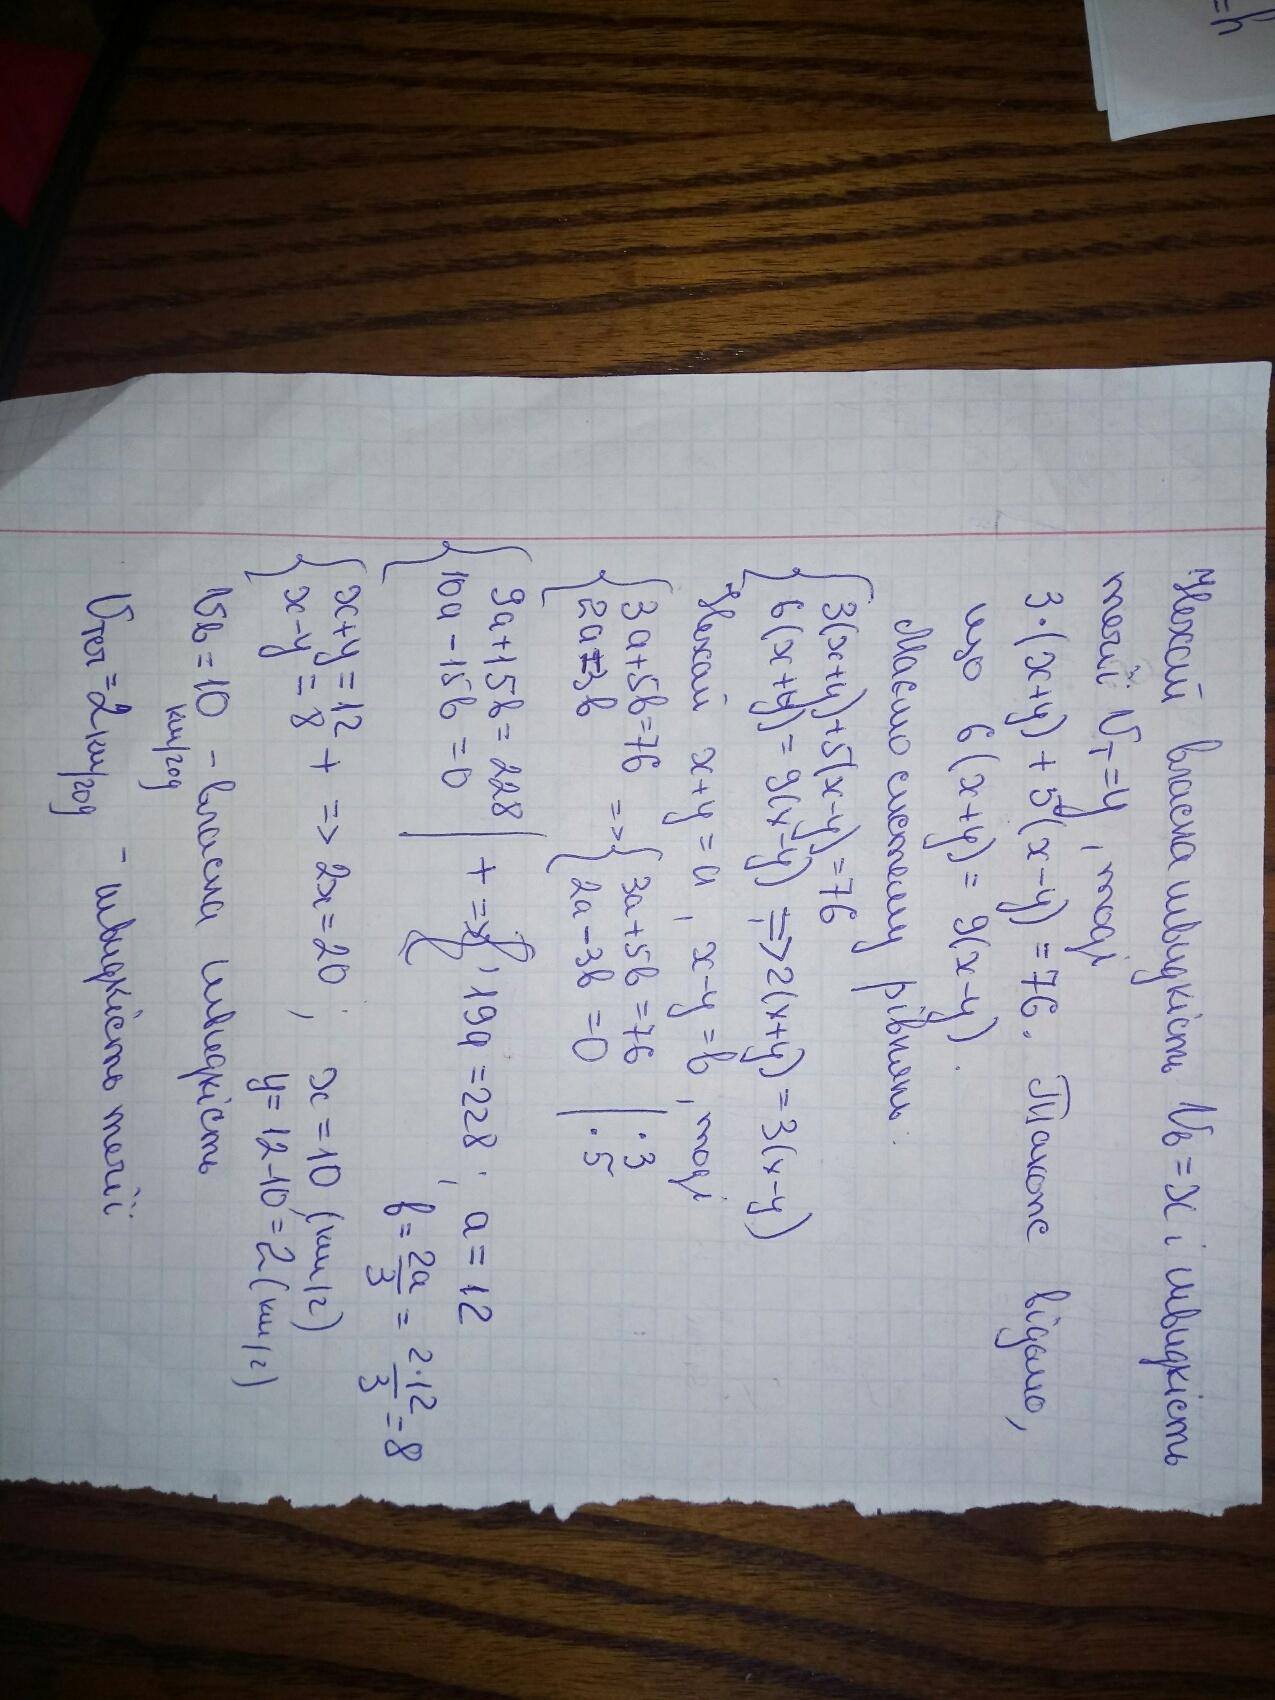 Нехай власна швидкість Vв = x і швидкість
течії Vт = y, тоді
3·(x+y) + 5(x-y) = 76. Також відомо,
що 6(x+y) = 9(x-y).
Маємо систему рівнянь:
{3(x+y)+5(x-y)=76
{6(x+y)=9(x-y) => 2(x+y)=3(x-y)
Нехай x+y=a, x-y=b, тоді
{3a+5b=76 => {3a+5b=76 |·3
{2a=3b {2a-3b=0 |·5
{9a+15b=228 | + => 19a=228; a=12
{10a-15b=0 | b=2a/3=2·12/3=8
{x+y=12 + => 2x=20; x=10 (км/г)
{x-y=8 y=12-10=2 (км/г)
Vв=10 км/год - власна швидкість
Vтеч=2 км/год - швидкість течії
=y